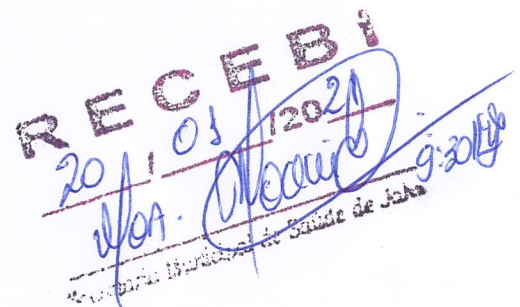 RECEBI
20 / 01 /2021
9:30
Secretaria Municipal de Saúde de Jahu